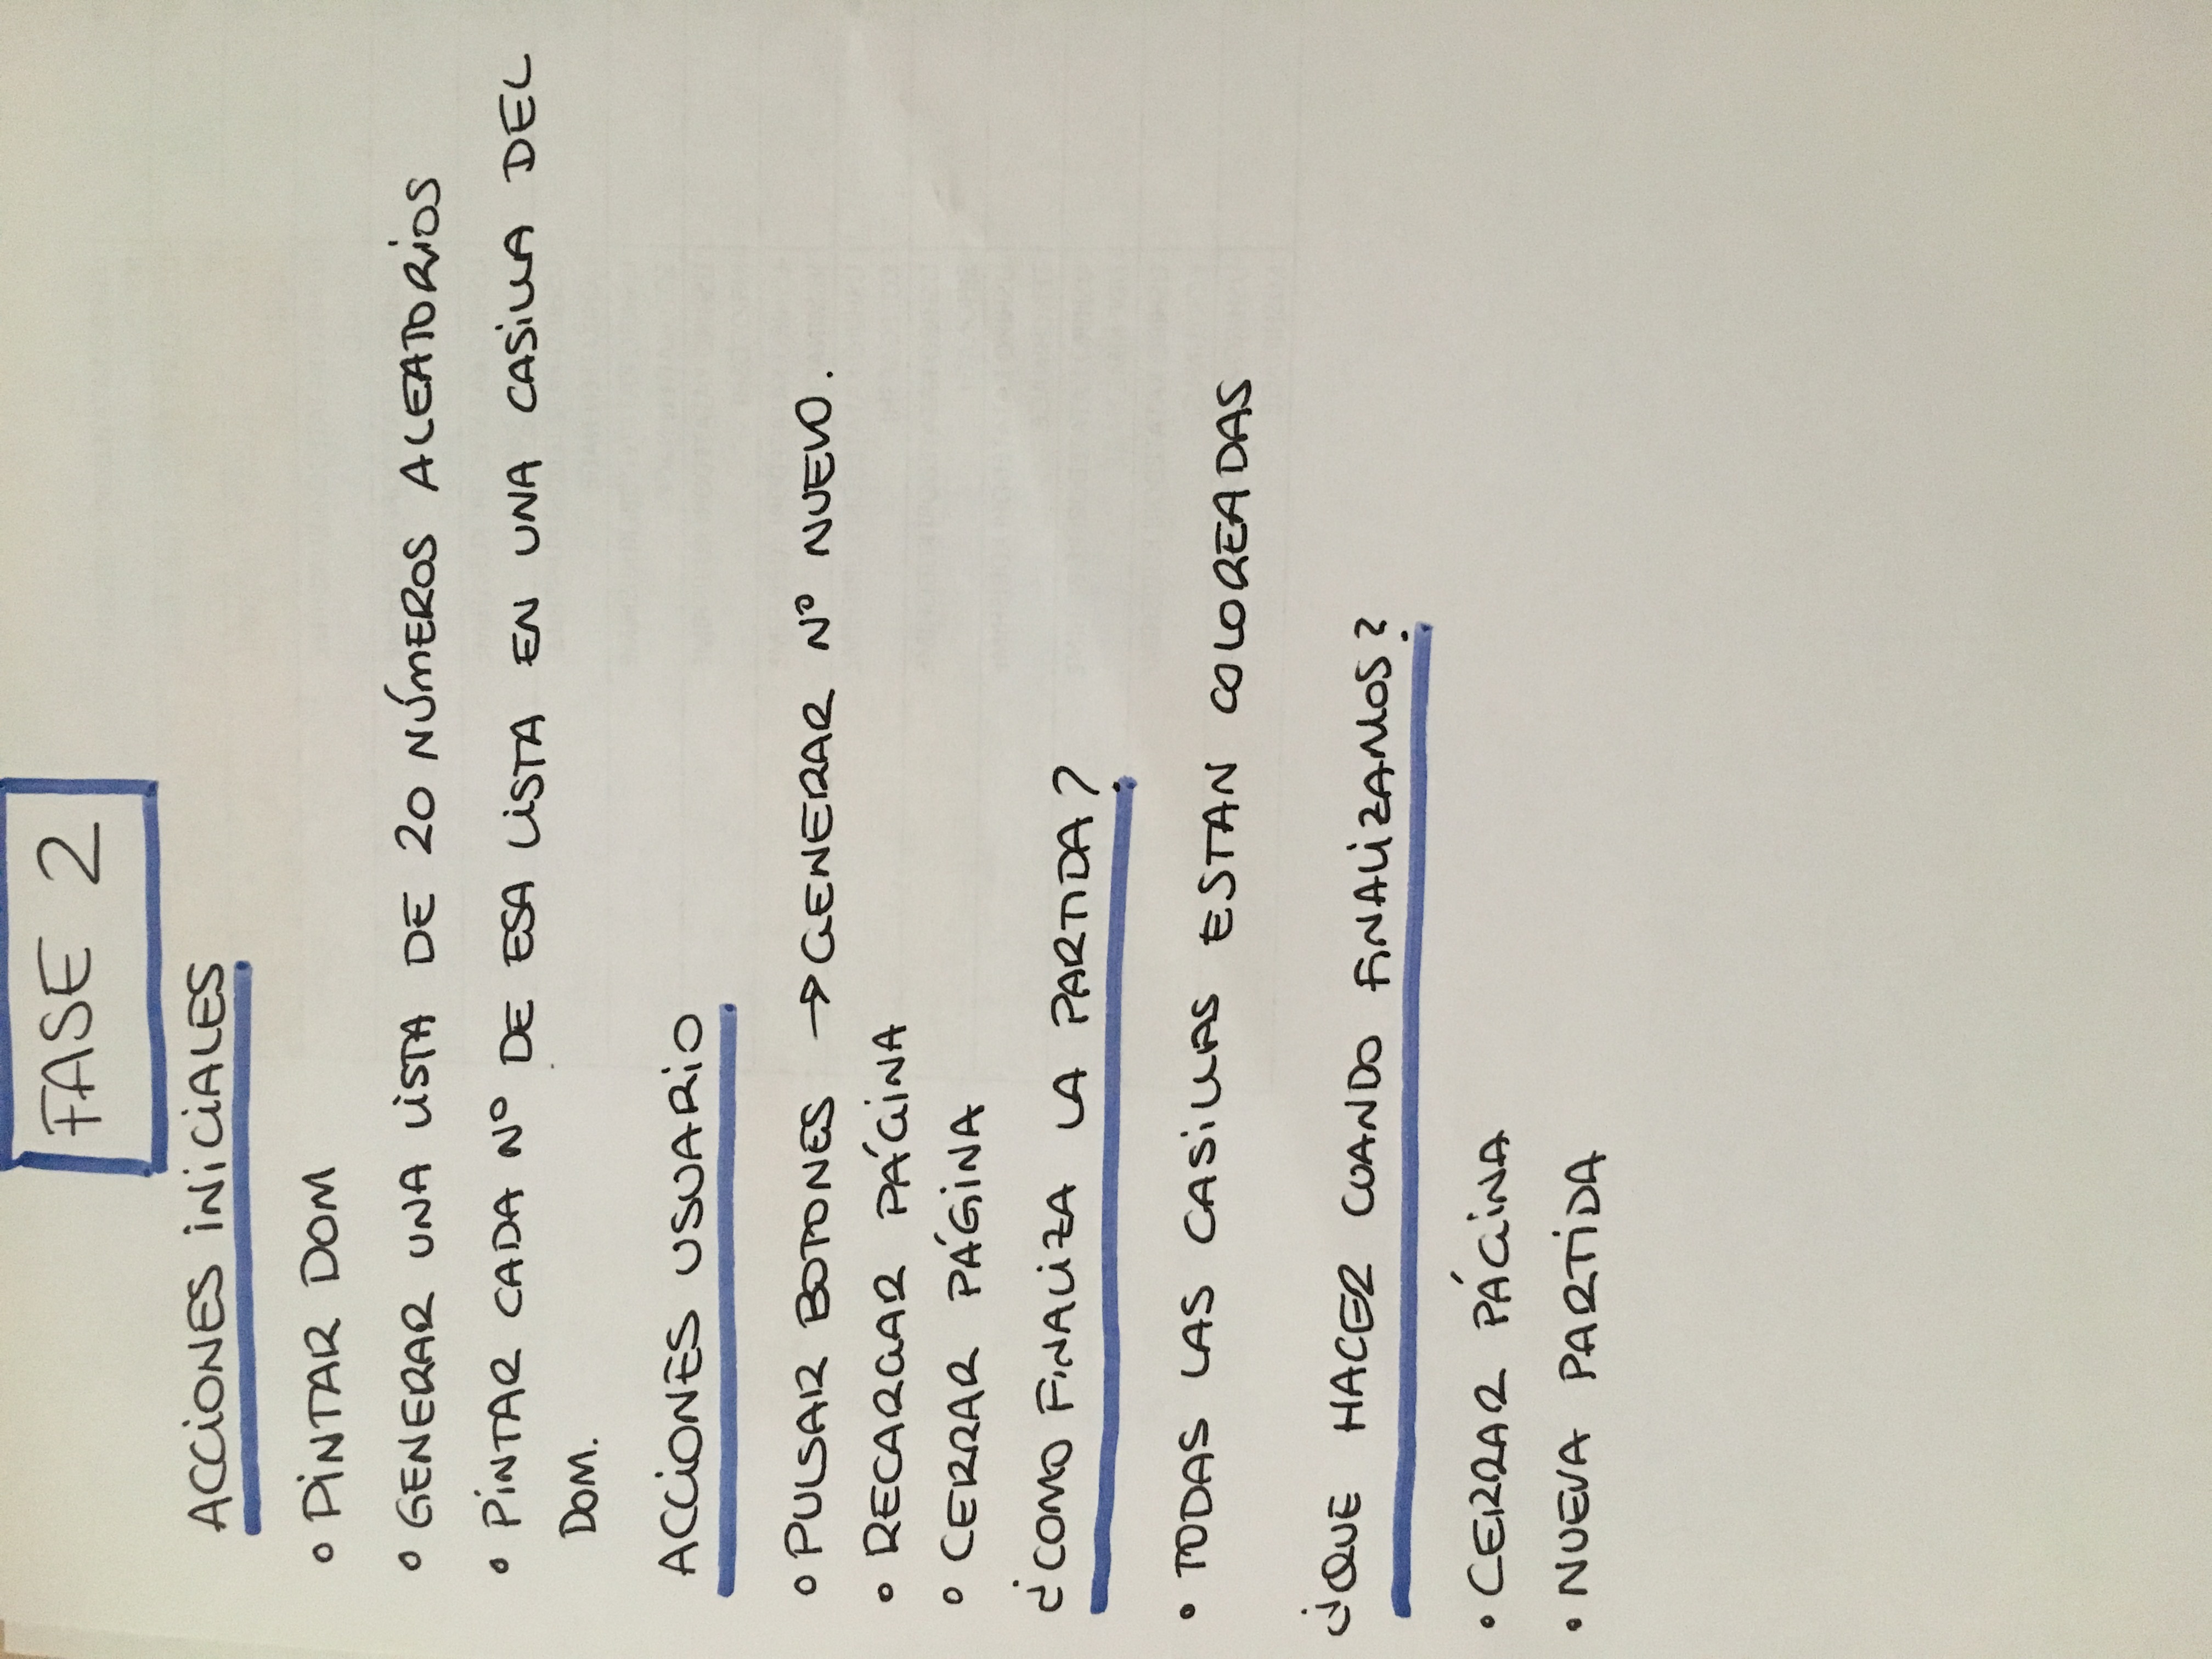 FASE 2
ACCIONES INICIALES
PINTAR DOM
GENERAR UNA LISTA DE 20 NÚMEROS ALEATORIOS
PINTAR CADA Nº DE ESA LISTA EN UNA CASILLA DEL
DOM.
ACCIONES USUARIO
PULSAR BOTONES → GENERAR Nº NUEVO.
RECARGAR PÁGINA
CERRAR PÁGINA
¿COMO FINALIZA LA PARTIDA?
TODAS LAS CASILLAS ESTAN COLOREADAS
¿QUE HACER CUANDO FINALIZAMOS?
CERRAR PÁGINA
NUEVA PARTIDA